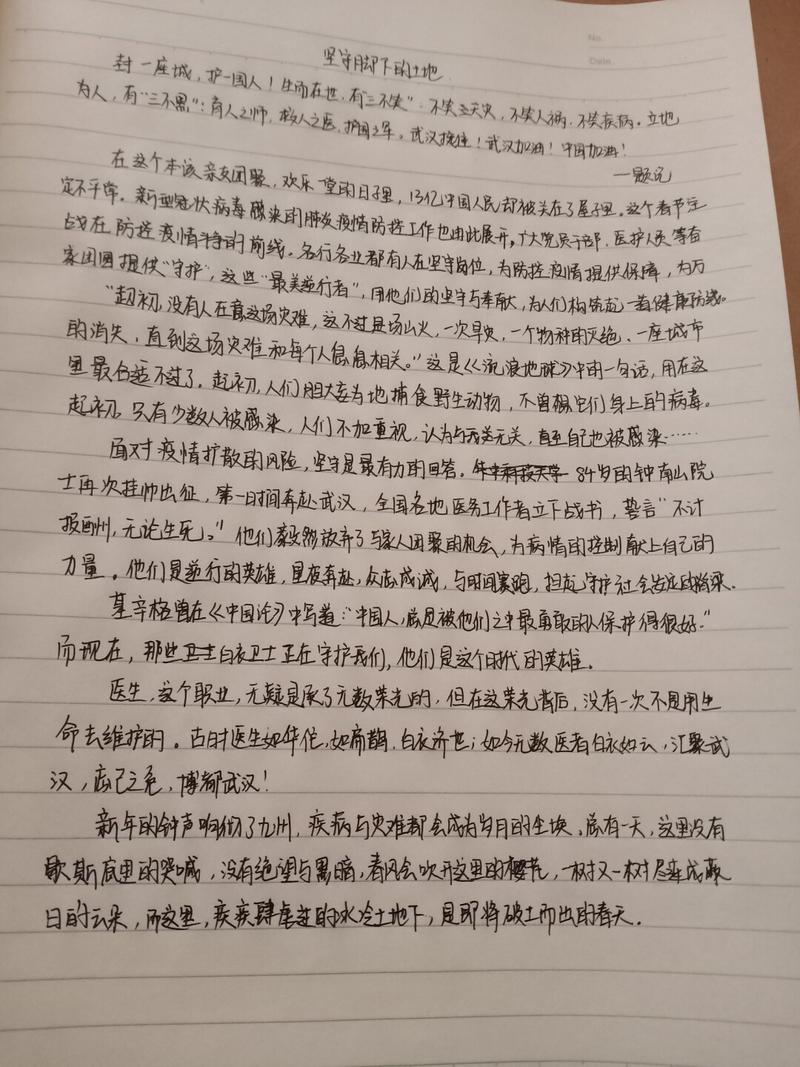 No.
Date.
坚守脚下的土地
封一座城，护一国人！生而在世，有"三不笑"：不笑天灾，不笑人祸，不笑疾病。立地
为人，有"三不黑"：育人之师，救人之医，护国之军。武汉挺住！武汉加油！中国加油！
—题记
在这个本该亲友团聚，欢乐一堂的日子里，13亿中国人民却被关在了屋子里。这个春节注
定不平常。新型冠状病毒感染的肺炎疫情防控工作也由此展开。广大党员干部、医护人员等奋
战在防控疫情斗争的前线。各行各业都有人在坚守岗位，为防控疫情提供保障，为万
家团圆提供"守护"，这些"最美逆行者"，用他们的坚守与奉献，为人们构筑起一道健康防线。
"起初，没有人在意这场灾难，这不过是场山火，一次旱灾，一个物种的灭绝、一座城市
的消失，直到这场灾难和每个人息息相关。"这是《流浪地球》中的一句话，用在这
里最合适不过了。起初，人们胆大妄为地捕食野生动物，不曾想它们身上的病毒。
起初，只有少数人被感染，人们不加重视，认为与我无关，直至自己也被感染……
面对疫情扩散的风险，坚守是最有力的回答。84岁的钟南山院
士再次挂帅出征，第一时间奔赴武汉，全国各地医务工作者立下战书，誓言"不计
报酬州，无论生死。"他们毅然放弃了与家人团聚的机会，为病情的控制献上自己的
力量。他们是逆行的英雄，星夜奔赴，众志成诚，与时间赛跑，担起守护社会
基辛格曾在《中国论》中写道："中国人，总是被他们之中最勇敢的人保护得很好。"
而现在，那些白衣卫士正在守护我们，他们是这个时代的英雄。
医生，这个职业，无疑是承了无数荣光的，但在这荣光背后，没有一次不是用生
命去维护的。古时医生如华佗，如扁鹊，白衣济世；如今无数医者白衣如云，汇聚武
汉，忘己之危，博都武汉！
新年的钟声响彻了九州，疾病与灾难都会成为岁月的尘埃。总有一天，这里没有
歇斯底里的哭喊，没有绝望与黑暗，春风会吹开这里的樱花，一树又一树
日的云朵，而这里，疾疾肆虐过的冰冷土地下，是即将破土而出的春天。